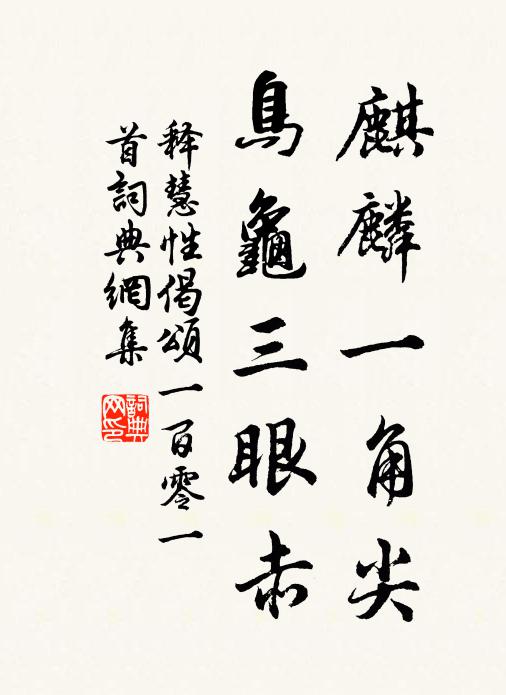 麒麟一角尖
烏龜三眼赤
释慧性偈頌一百零一
首詞典網集
詞典网印